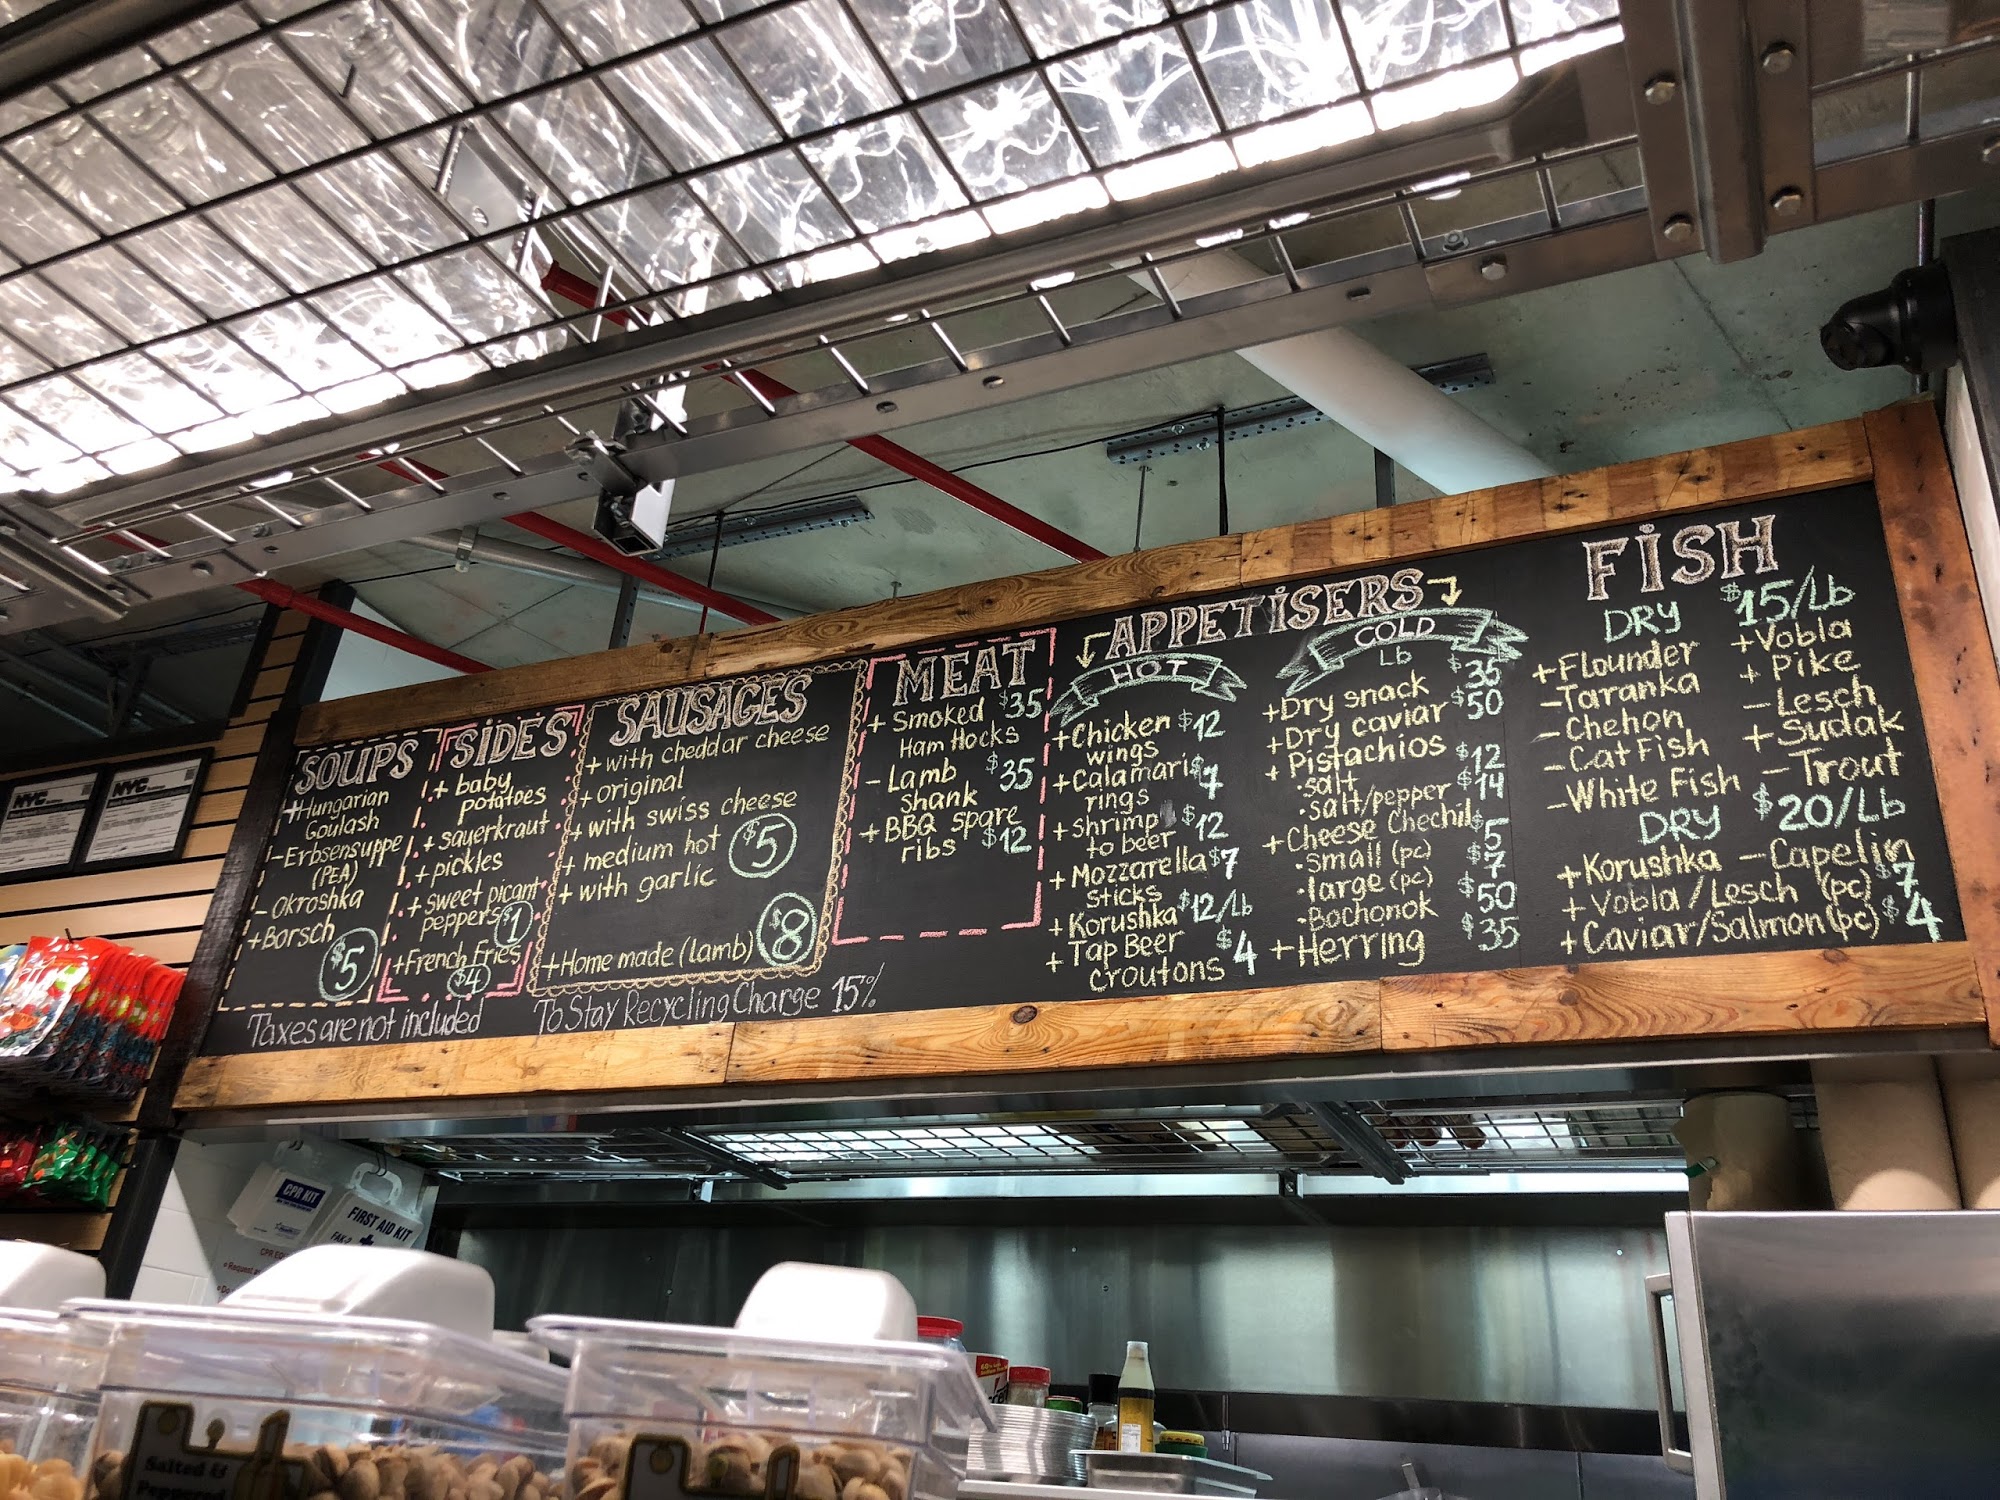 SOUPS
+Hungarian
Goulash
-Erbsensuppe
(PEA)
-Okroshka
+Borsch
$5
SIDES
+ baby
potatoes
+ sauerkraut
+pickles
+ sweet picant
peppers $1
+French Fries
$4
SAUSAGES
+ with cheddar cheese
+ original
+ with swiss cheese
+ medium hot
+ with garlic
$5
+Home made (lamb) $8
Taxes are not included
To Stay Recycling Charge 15%
MEAT
+ Smoked $35
Ham Hocks
- Lamb $35
shank
+ BBQ spare
ribs $12
APPETISERS
HOT
+Chicken $12
wings
+Calamari $7
rings
+Shrimp $12
to beer
+Mozzarella $7
sticks
+Korushka $12/Lb
+Tap Beer $4
croutons
COLD
Lb
+Dry snack $35
+Dry caviar $50
+ Pistachios
·salt $12
·salt/pepper $14
+Cheese Chechil
·small (pc) $5
·large (pc) $7
·Bochonok $50
+Herring $35
FISH
DRY $15/Lb
+Flounder
-Taranka
-Chehon
-CatFish
-White Fish
+Vobla
+ Pike
-Lesch
+Sudak
-Trout
DRY $20/Lb
+Korushka -Capelin
+Vobla/Lesch (pc) $7
+Caviar/Salmon(pc) $4
NYC
NYC
CPR KIT
FIRST AID KIT
Salted &
Peppered